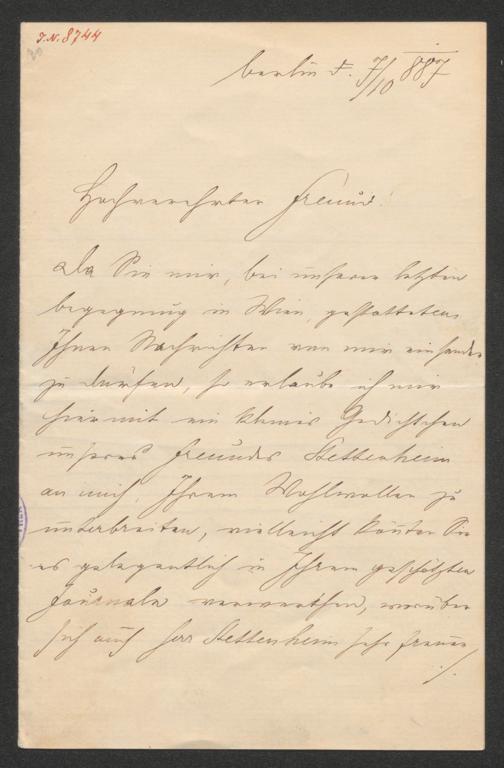 J.N. 8744
20
Berlin d. 7/10 887
Hochverehrter Freund!
Da Sie mir, bei unserer letzten
Begegnung in Wien, gestatteten
Ihnen Nachrichten von mir einsenden
zu dürfen, so erlaube ich mir
hiermit ein kleines Gedichtchen
unseres Freundes Stettenheim
an mich, Ihrem Wohlwollen zu
unterbreiten, vielleicht könnten Sie
es gelegentlich in Ihrem geschätzten
Journale verwerthen, worüber
sich auch Herr Stettenheim sehr freuen
./.